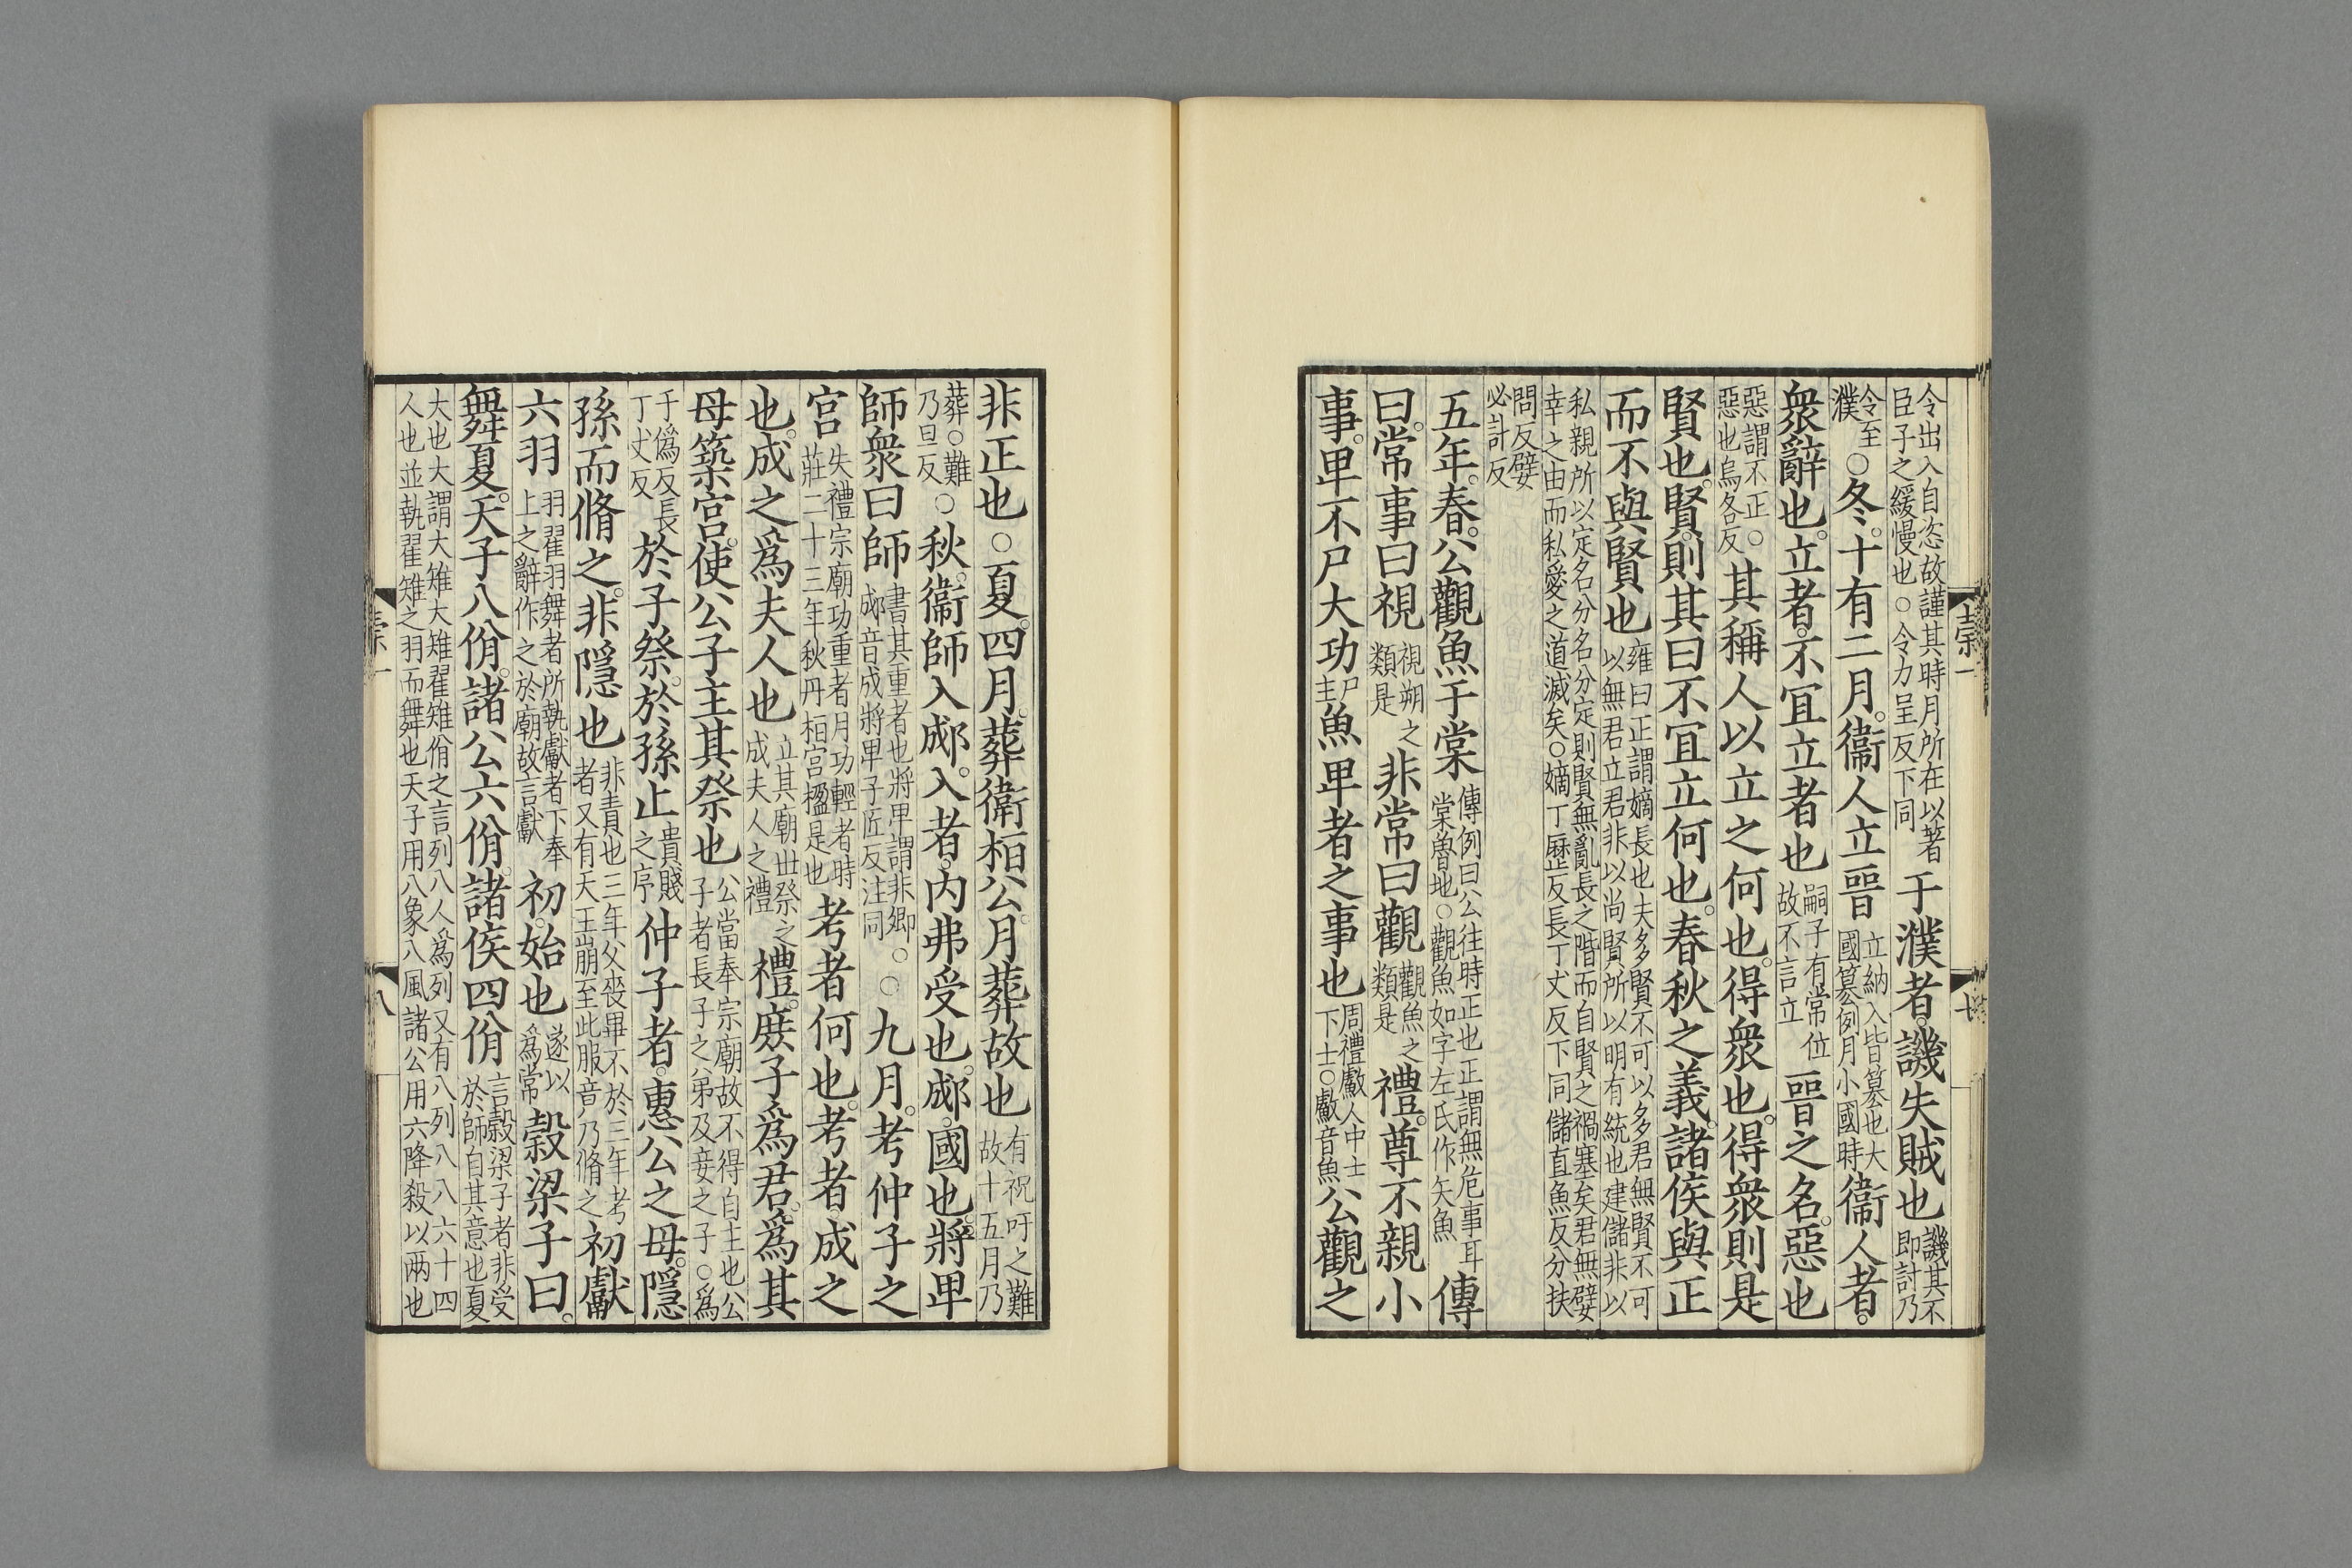 令出入自恣故謹其時月所在以著
臣子之緩慢也○令力呈反下同
于濮者譏失賊也
譏其不
即討乃
令至
濮
○冬十有二月衞人立晉
立納入皆篡也大
國篡例月小國時
衞人者
衆辭也立者不宜立者也
嗣子有常位
故不言立
晉之名惡也
惡謂不正○
惡也烏各反
其稱人以立之何也得衆也得衆則是
賢也賢則其曰不宜立何也春秋之義諸侯與正
而不與賢也
雍曰正謂嫡長也夫多賢不可以多君無賢不可
以無君立君非以尚賢所以明有統也建儲非以
私親所以定名分名分定則賢無亂長之階而自賢之禍塞矣君無嬖
幸之由而私愛之道滅矣○嫡丁歷反長丁丈反下同儲直魚反分扶
問反嬖
必計反
五年春公觀魚于棠
傳例曰公往時正也正謂無危事耳
棠魯地○觀魚如字左氏作矢魚
傳
曰常事曰視
視朔之
類是
非常曰觀
觀魚之
類是
禮尊不親小
事卑不尸大功
尸
主
魚卑者之事也
周禮䱷人中士
下士○䱷音魚
公觀之
非正也○夏四月葬衛桓公月葬故也
有祝吁之難
故十五月乃
葬○難
乃旦反
○秋衞師入郕入者内弗受也郕國也將卑
師衆曰師
書其重者也將卑謂非卿○
郕音成將卑子匠反注同
○九月考仲子之
宮
失禮宗廟功重者月功輕者時
莊二十三年秋丹桓宮楹是也
考者何也考者成之
也成之爲夫人也
立其廟世祭之
成夫人之禮
禮庶子爲君爲其
母築宮使公子主其祭也
公當奉宗廟故不得自主也公
子者長子之弟及妾之子○爲
于僞反長
丁丈反
於子祭於孫止
貴賤
之序
仲子者惠公之母隱
孫而脩之非隱也
非責也三年父喪畢不於三年考
者又有天王崩至此服音乃脩之
初獻
六羽
羽翟羽舞者所執獻者下奉
上之辭作之於廟故言獻
初始也
遂以
爲常
穀梁子曰
舞夏天子八佾諸公六佾諸侯四佾
言穀梁子者非受
於師自其意也夏
大也大謂大雉大雉翟雉佾之言列八人爲列又有八列八八六十四
人也並執翟雉之羽而舞也天子用八象八風諸公用六降殺以兩也